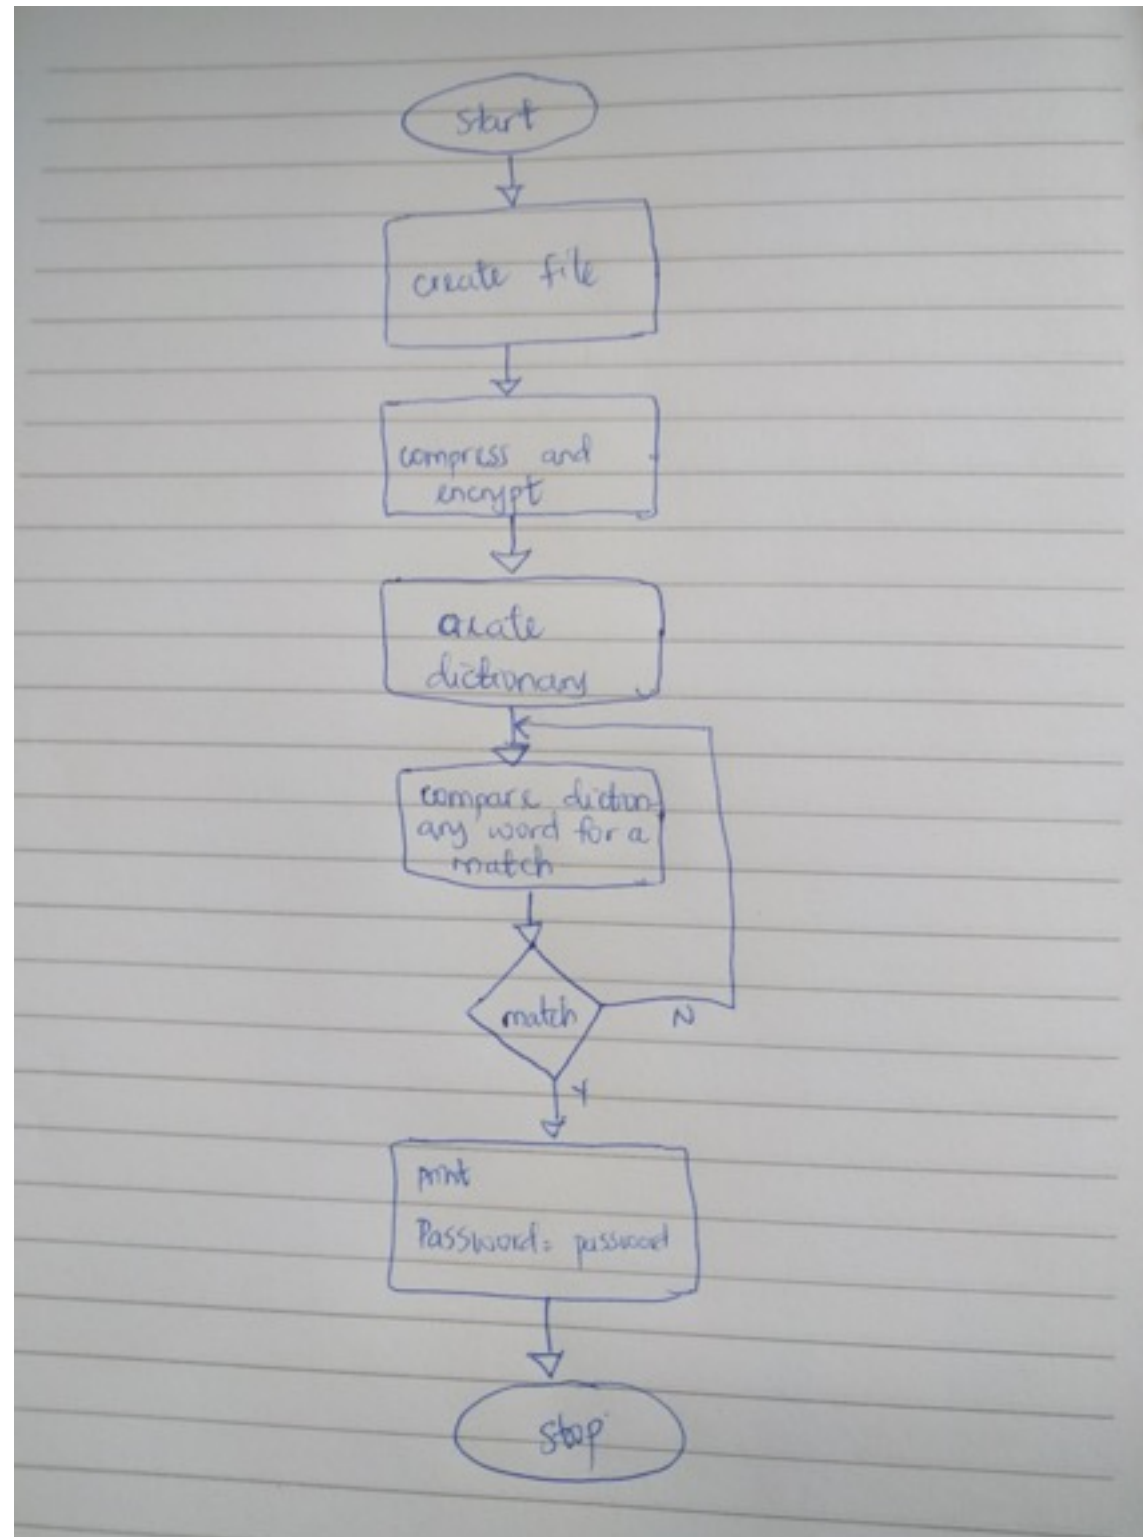 start
create file
compress and
encrypt
create
dictionary
compare diction-
ary word for a
match
match
N
Y
print
Password= password
stop